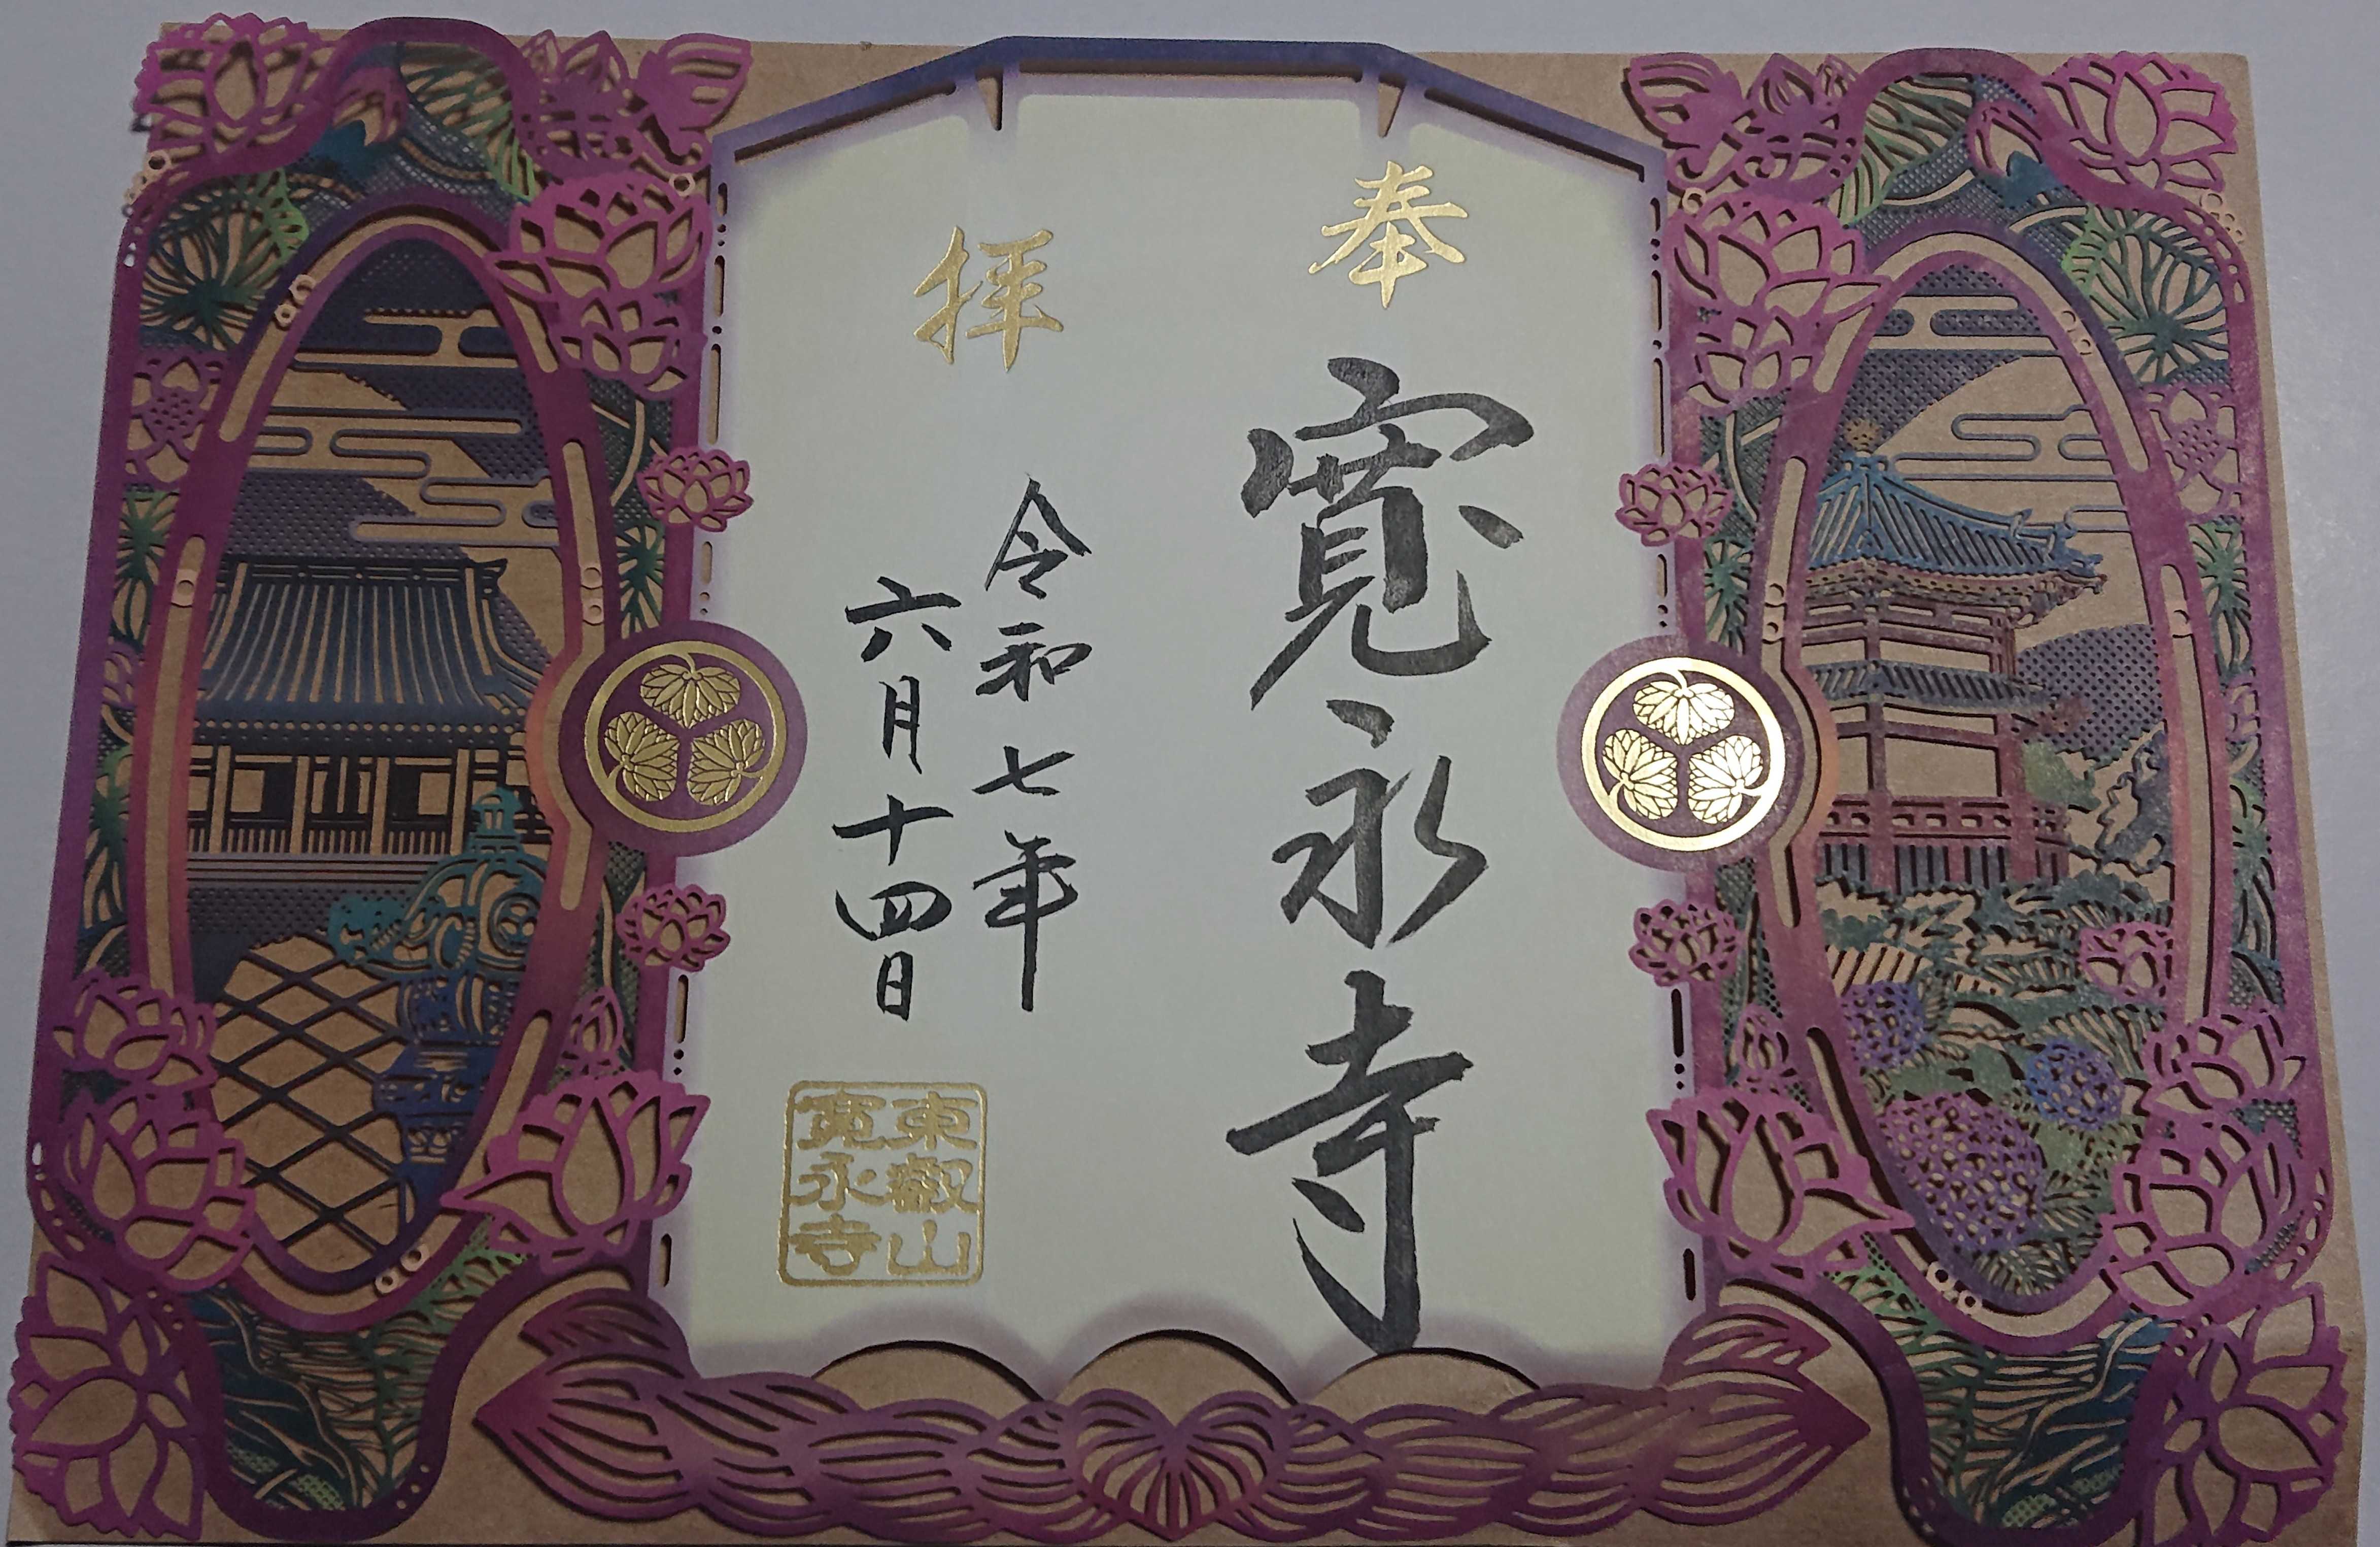 奉
寛永寺
拝
令和七年
六月十四日
東叡山
寛永寺